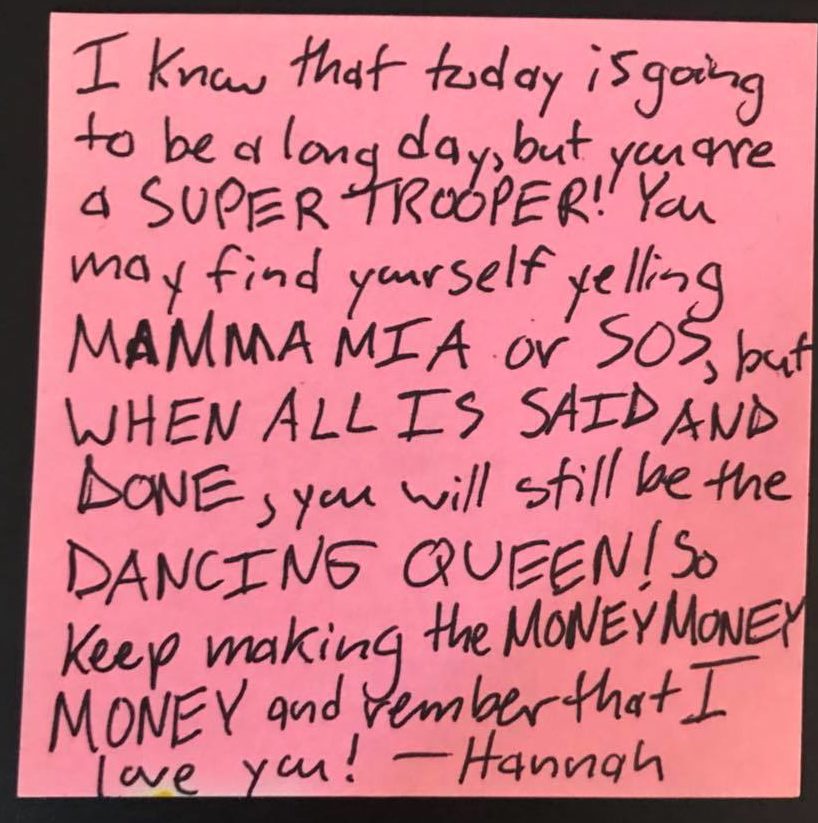 I know that today is going
to be a long day, but you are
a SUPER TROOPER! You
may find yourself yelling
MAMMA MIA or SOS, but
WHEN ALL IS SAID AND
DONE, you will still be the
DANCING QUEEN! So
keep making the MONEY MONEY
MONEY and rember that I
love you! — Hannah